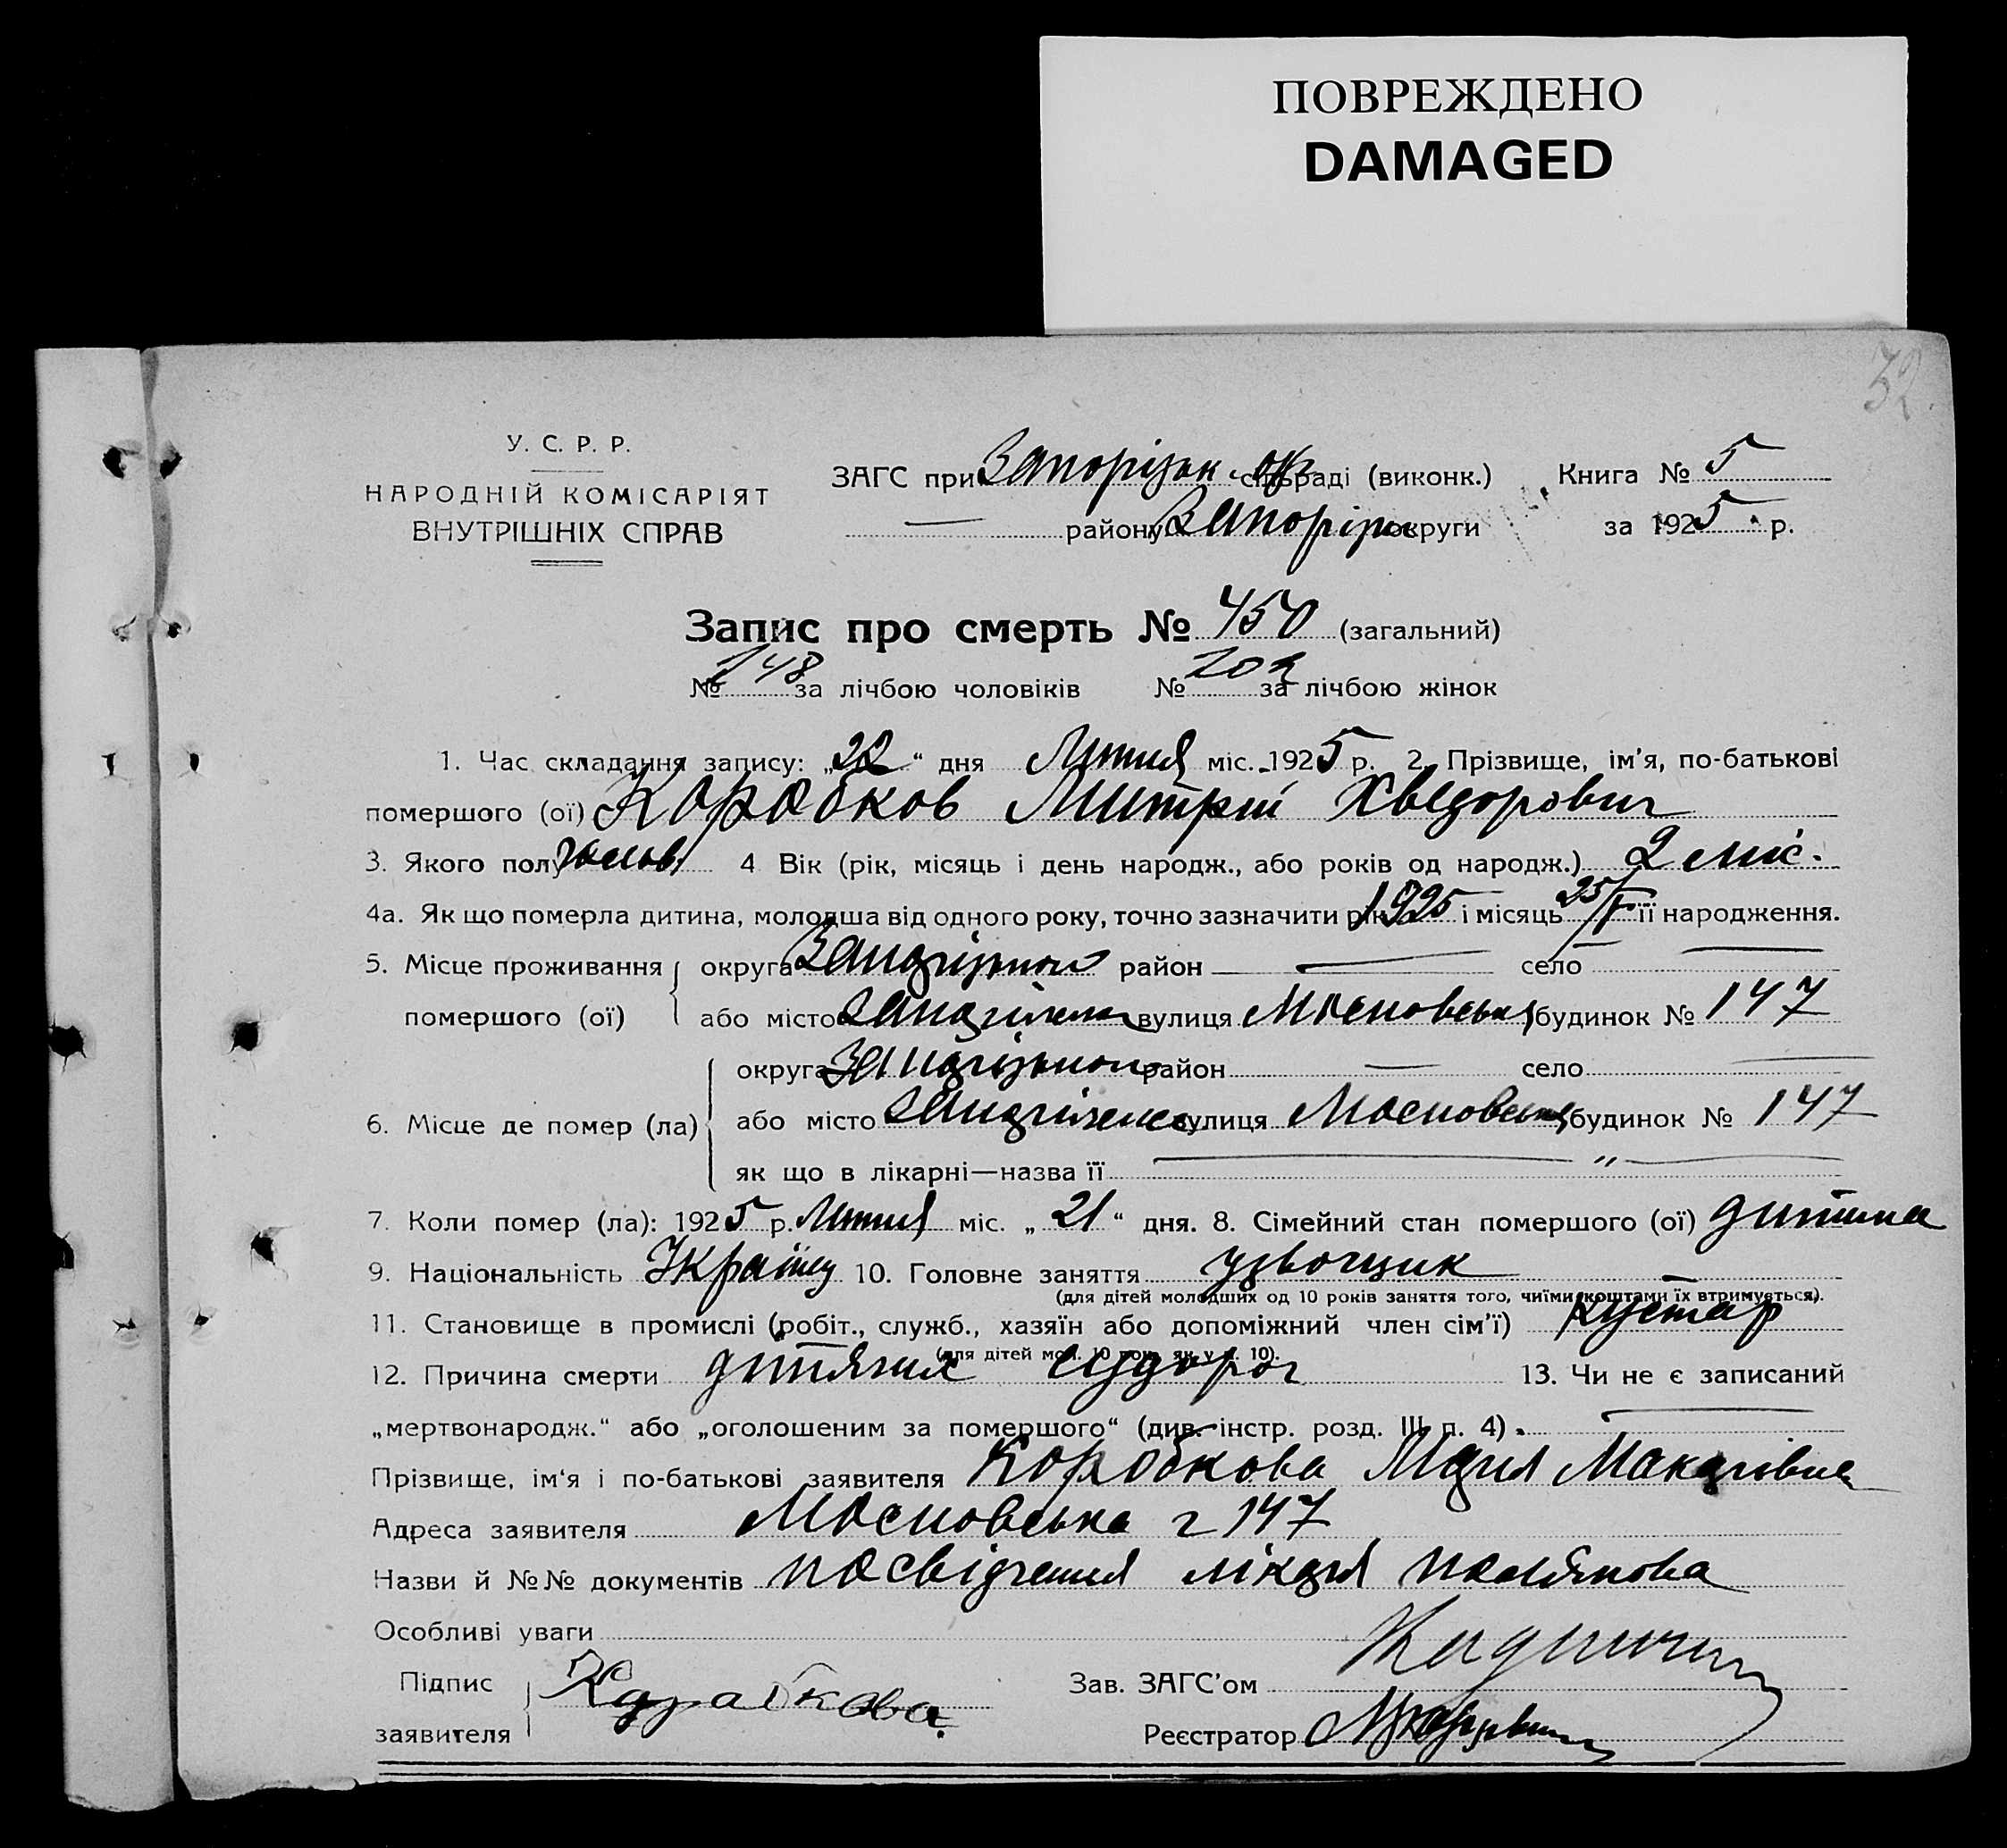 ПОВРЕЖДЕНО
DAMAGED
32
У. С. Р. Р.
НАРОДНІЙ КОМІСАРІЯТ
ВНУТРІШНІХ СПРАВ
ЗАГС при Запорізьк. окр сільраді (виконк.) Книга № 5
— району Запоріз округи за 1925 р.
Запис про смерть № 450 (загальний)
№ 248 за лічбою чоловіків № 202 за лічбою жінок
1. Час складання запису: „22“ дня Лютня міс. 1925 р. 2. Прізвище, ім'я, по-батькові
помершого (ої) Коробков Митрій Хведорович
3. Якого полу чолов. 4 Вік (рік, місяць і день народж., або років од народж.) 2 міс.
4а. Як що померла дитина, молодша від одного року, точно зазначити рік 1925 і місяць 25/I її народження.
5. Місце проживання округа район — село —
помершого (ої) або місто Запоріжжя вулиця Московська будинок № 147
округа район — село —
6. Місце де помер (ла) або місто Запоріжжя вулиця Московська будинок № 147
як що в лікарні—назва її — „ —
7. Коли помер (ла): 1925 р. Лютня міс. „21“ дня. 8. Сімейний стан помершого (ої) дитина
9. Національність Українц 10. Головне заняття узвощик
(для дітей молодших од 10 років заняття того, чиїми коштами їх втримується).
11. Становище в промислі (робіт., служб., хазяїн або допоміжний член сім'ї) кустар
(для дітей мол. 10 рок. як у п. 10).
12. Причина смерти дитячих судорог 13. Чи не є записаний
„мертвонародж.“ або „оголошеним за помершого“ (див. інстр. розд. III п. 4). —
Прізвище, ім'я і по-батькові заявителя Коробкова Марія Макарівна
Адреса заявителя Московська 147
Назви й №№ документів посвідчення лікаря Полякова
Особливі уваги
Підпис Зав. ЗАГС'ом
заявителя Карабкова. Реєстратор